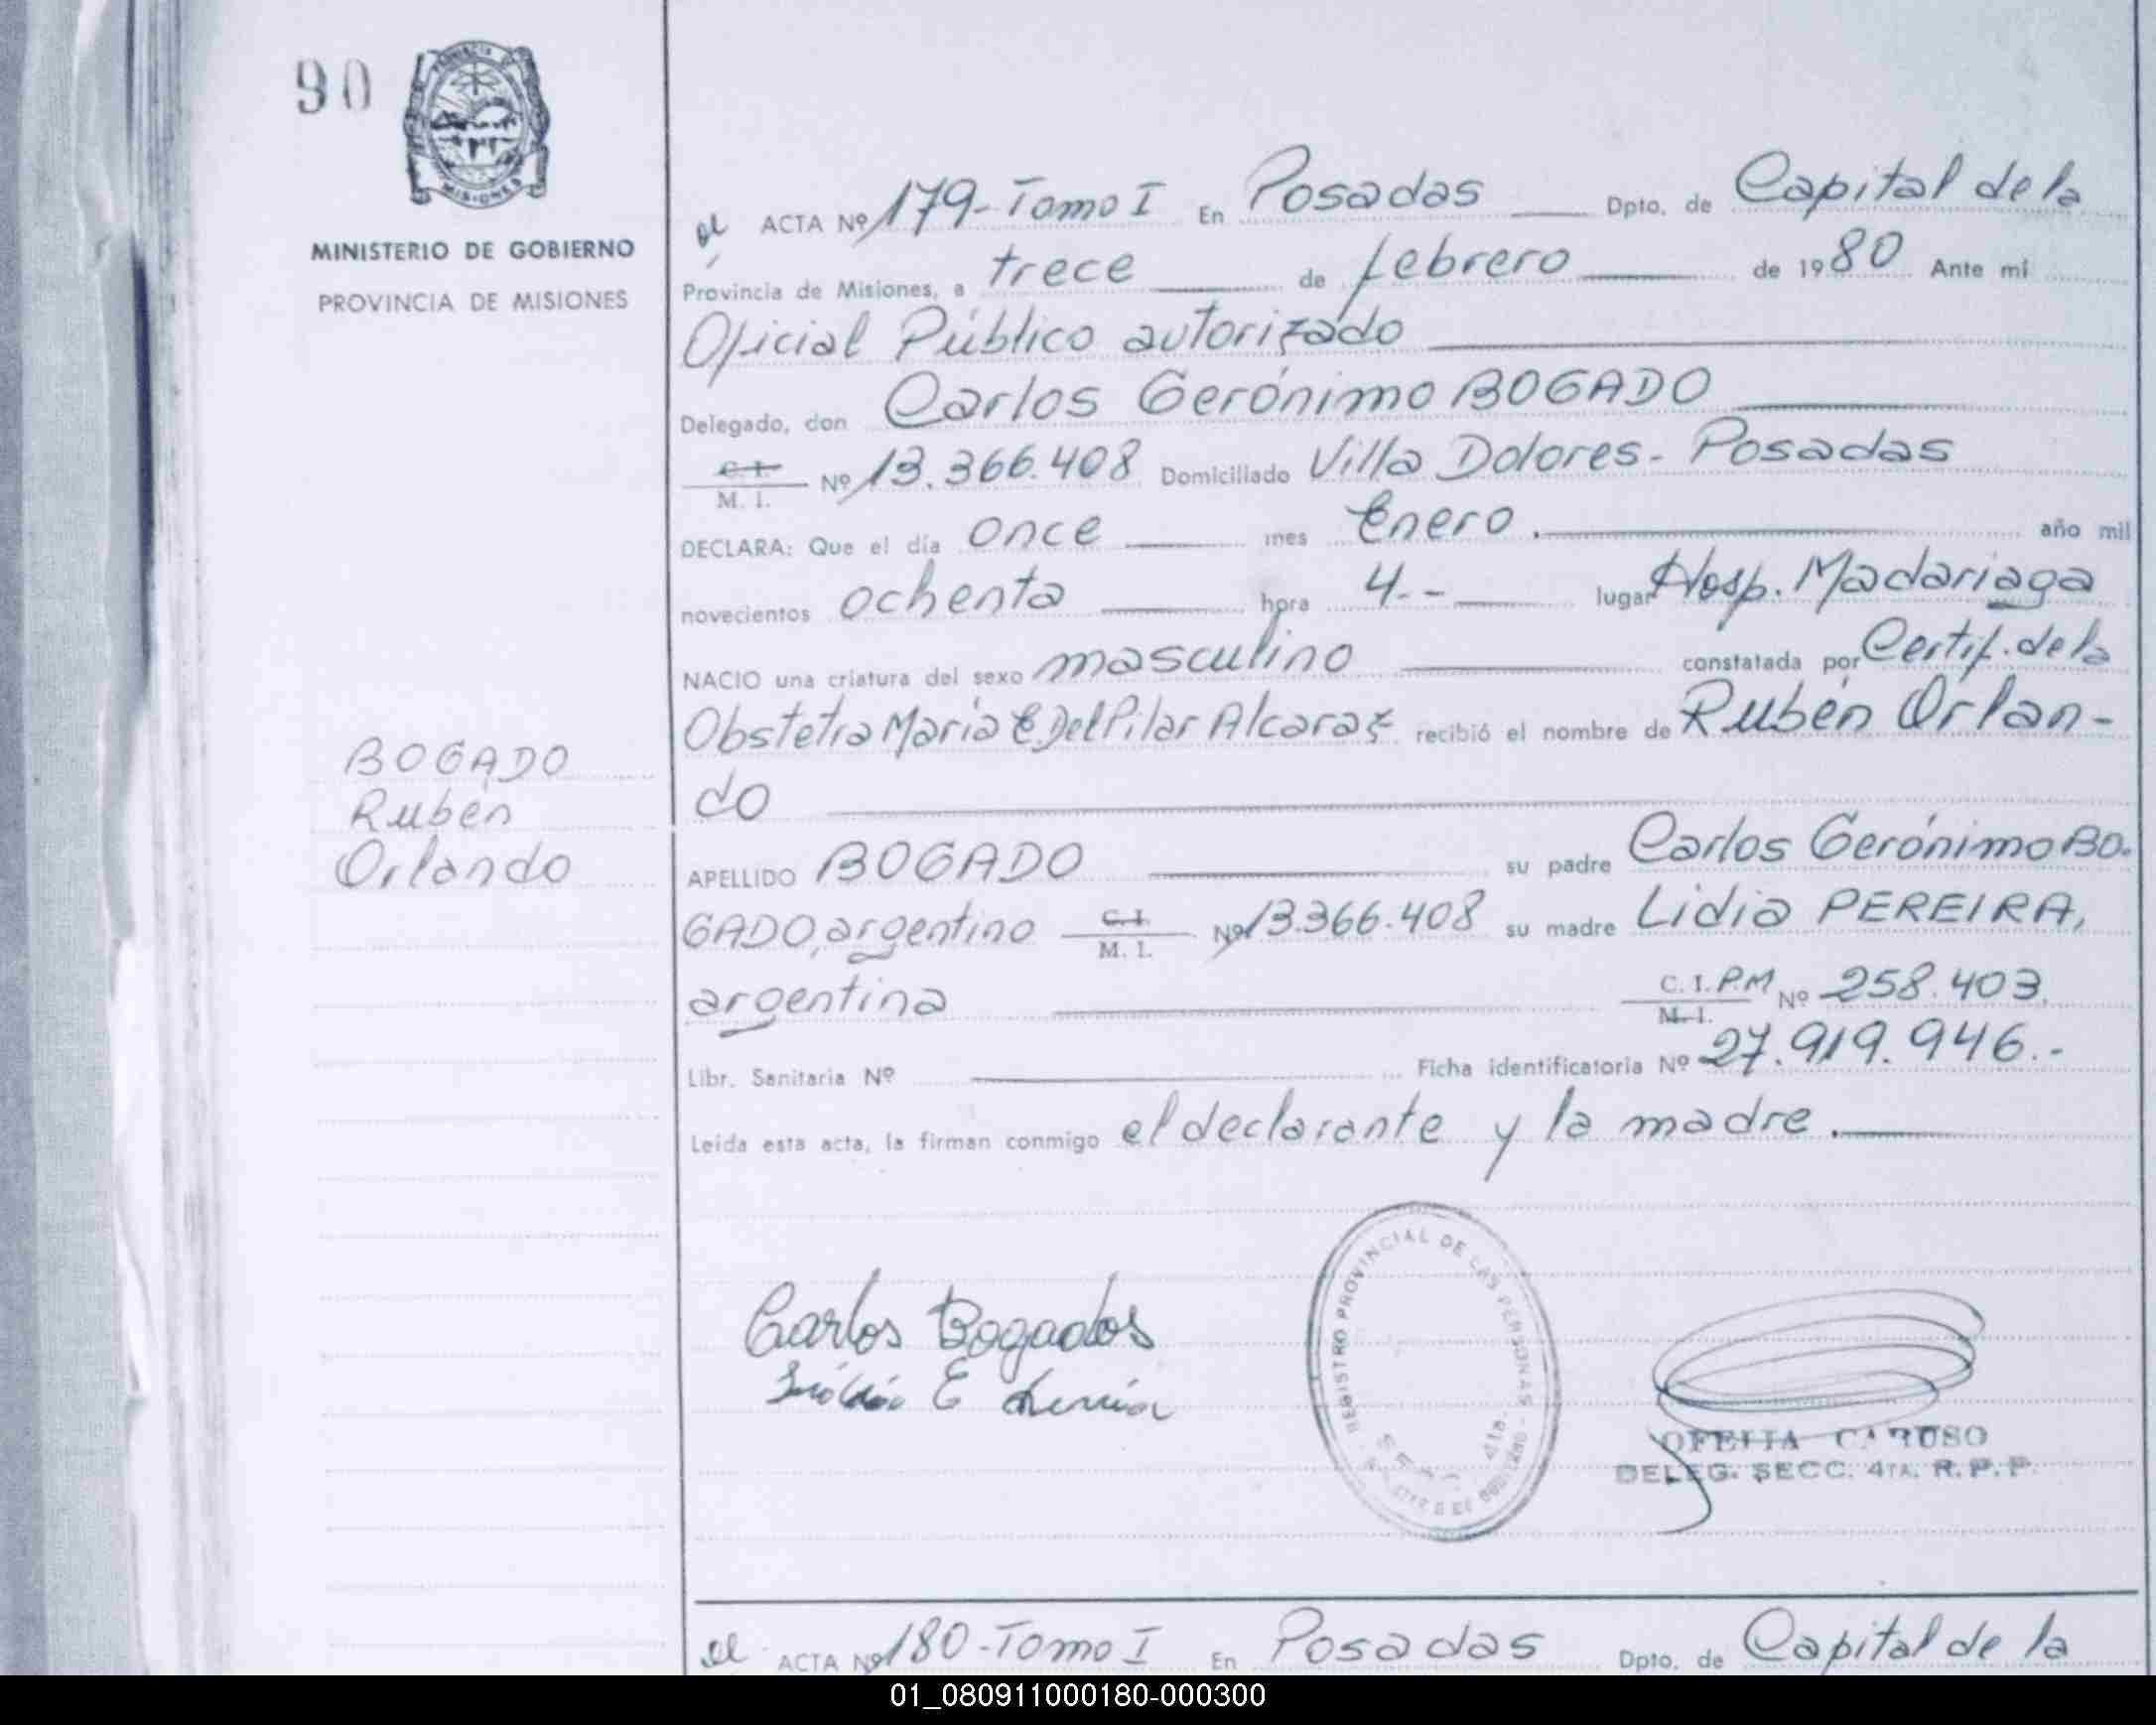 90
MINISTERIO DE GOBIERNO
PROVINCIA DE MISIONES
ACTA Nº 179- Tomo I En Posadas Dpto. de Capital de la
Provincia de Misiones, a trece de febrero de 1980 Ante mi
Oficial Público autorizado
Delegado, don Carlos Gerónimo BOGADO
C. I.
M. I. Nº 13.366.408 Domiciliado Villa Dolores - Posadas
DECLARA: Que el día once mes Enero. año mil
novecientos ochenta hora 4.-- lugar Hosp. Madariaga
NACIO una criatura del sexo masculino constatada por Certif. de la
Obstetra María E. Del Pilar Alcaraz recibió el nombre de Rubén Orlan-
do
BOGADO
Rubén
Orlando
APELLIDO BOGADO su padre Carlos Gerónimo BO.
GADO, argentino C. I. M. I. Nº 13.366.408 su madre Lidia PEREIRA,
argentina C. I. P.M M. I. Nº 258.403.
Libr. Sanitaria Nº Ficha identificatoria Nº 27.919.946.-
Leída esta acta, la firman conmigo el declarante y la madre.
Carlos Bogados
REGISTRO PROVINCIAL DE LAS PERSONAS
SECC. 4ta.
OFELIA CARUSO
DELEG. SECC. 4TA. R. P. P.
el ACTA Nº 180 - Tomo I En Posadas Dpto. de Capital de la
01_080911000180-000300